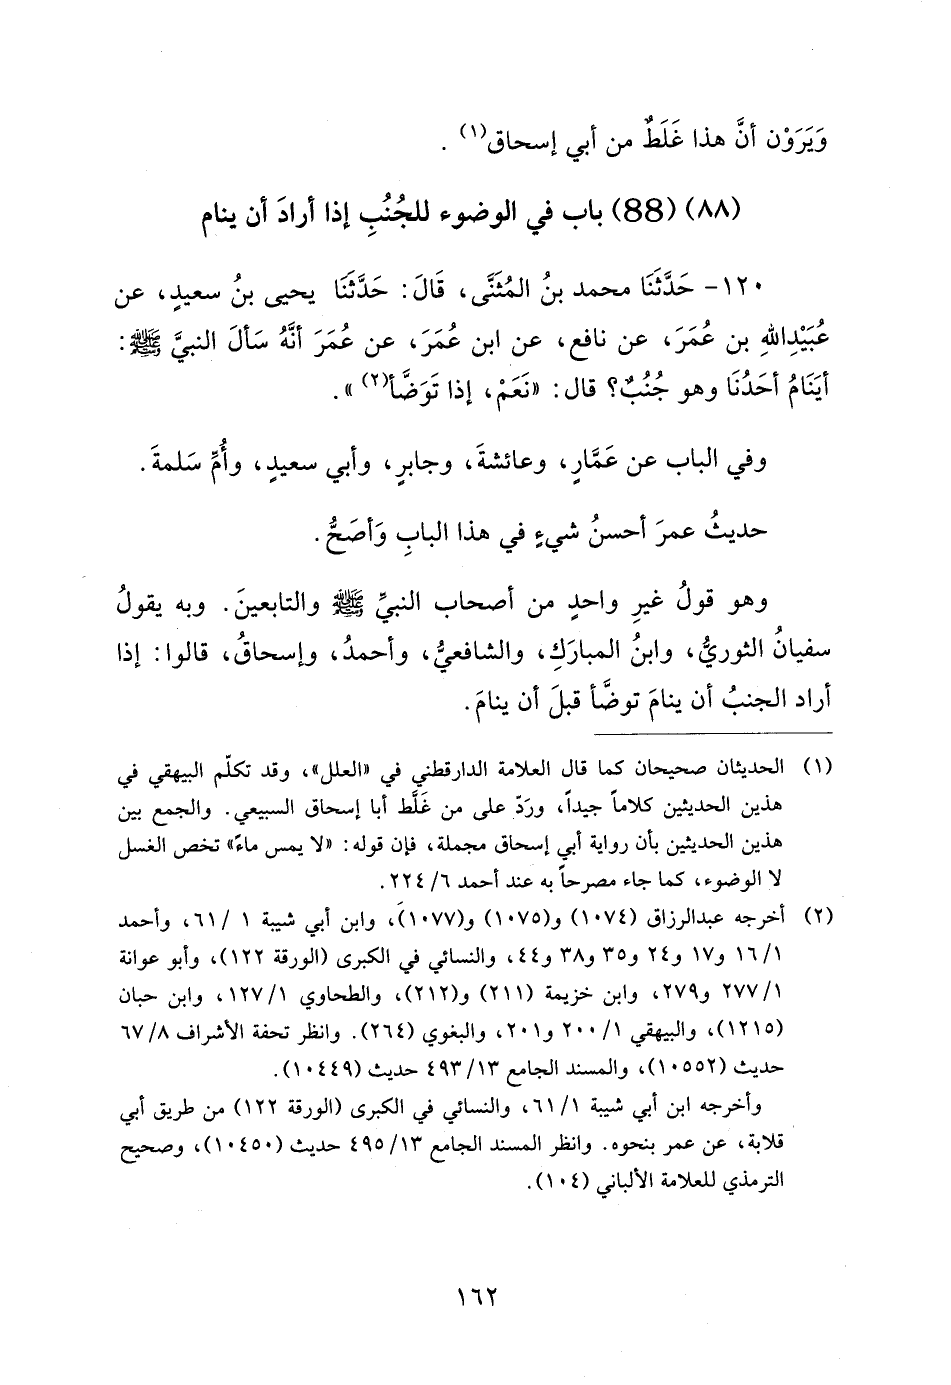 وَيَرَوْن أنَّ هذا غَلَطٌ من أبي إسحاق(١) .
(٨٨) (88) باب في الوضوء للجُنُبِ إذا أرادَ أن ينام
١٢٠- حَدَّثَنَا محمد بنُ المُثَنَّى، قَالَ: حَدَّثَنَا يحيى بنُ سعيدٍ، عن
عُبَيْدِاللهِ بن عُمَرَ، عن نافع، عن ابن عُمَرَ، عن عُمَرَ أنَّهُ سَألَ النبيَّ ﷺ:
أيَنَامُ أحَدُنَا وهو جُنُبٌ؟ قال: «نَعَمْ، إذا تَوَضَّأ(٢)».
وفي الباب عن عَمَّارٍ، وعائشةَ، وجابرٍ، وأبي سعيدٍ، وأُمِّ سَلمةَ.
حديثُ عمرَ أحسنُ شيءٍ في هذا البابِ وَأصَحُّ.
وهو قولُ غيرِ واحدٍ من أصحاب النبيِّ ﷺ والتابعينَ. وبه يقولُ
سفيانُ الثوريُّ، وابنُ المبارَكِ، والشافعيُّ، وأحمدُ، وإسحاقُ، قالوا: إذا
أراد الجنبُ أن ينامَ توضَّأ قبلَ أن ينامَ.
(١) الحديثان صحيحان كما قال العلامة الدارقطني في «العلل»، وقد تكلّم البيهقي في
هذين الحديثين كلاماً جيداً، ورَدّ على من غَلَّط أبا إسحاق السبيعي. والجمع بين
هذين الحديثين بأن رواية أبي إسحاق مجملة، فإن قوله: «لا يمس ماءً» تخص الغسل
لا الوضوء، كما جاء مصرحاً به عند أحمد ٦/ ٢٢٤.
(٢) أخرجه عبدالرزاق (١٠٧٤) و(١٠٧٥) و(١٠٧٧)، وابن أبي شيبة ١ /٦١، وأحمد
١/ ١٦ و١٧ و٢٤ و٣٥ و٣٨ و٤٤، والنسائي في الكبرى (الورقة ١٢٢)، وأبو عوانة
١/ ٢٧٧ و٢٧٩، وابن خزيمة (٢١١) و(٢١٢)، والطحاوي ١/ ١٢٧، وابن حبان
(١٢١٥)، والبيهقي ١/ ٢٠٠ و٢٠١، والبغوي (٢٦٤). وانظر تحفة الأشراف ٨/ ٦٧
حديث (١٠٥٥٢)، والمسند الجامع ١٣/ ٤٩٣ حديث (١٠٤٤٩).
وأخرجه ابن أبي شيبة ١/ ٦١، والنسائي في الكبرى (الورقة ١٢٢) من طريق أبي
قلابة، عن عمر بنحوه. وانظر المسند الجامع ١٣/ ٤٩٥ حديث (١٠٤٥٠)، وصحيح
الترمذي للعلامة الألباني (١٠٤).
١٦٢